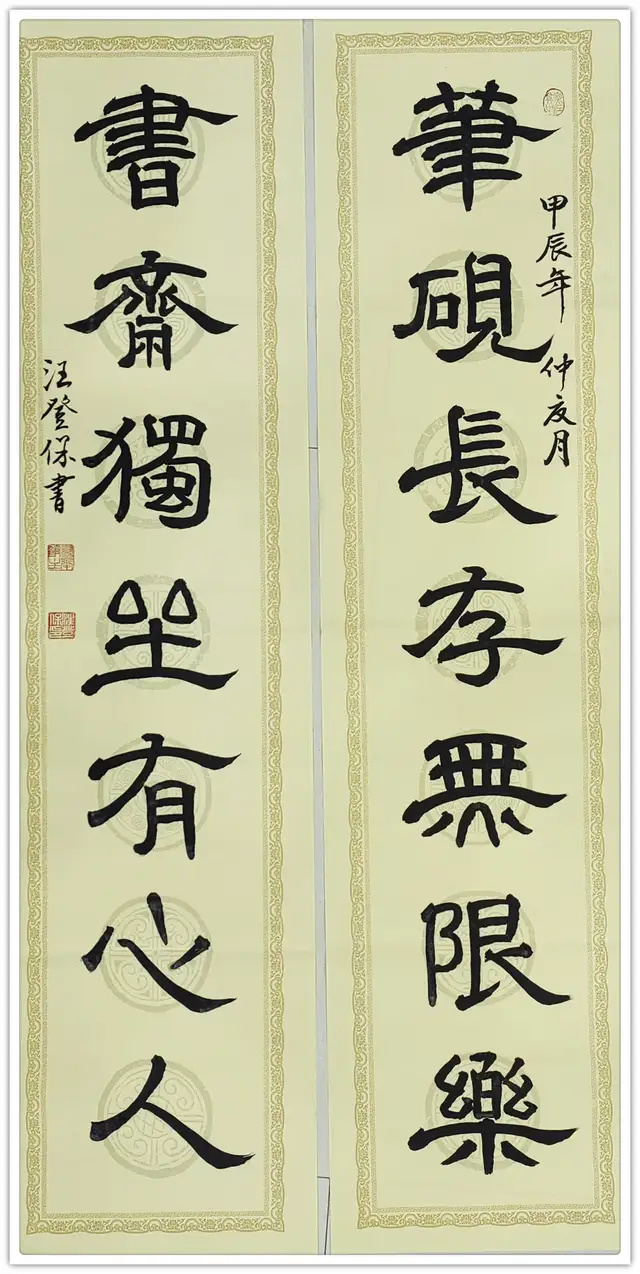 筆硯長存無限樂
甲辰年 仲夏月
書齋獨坐有心人
汪登保書